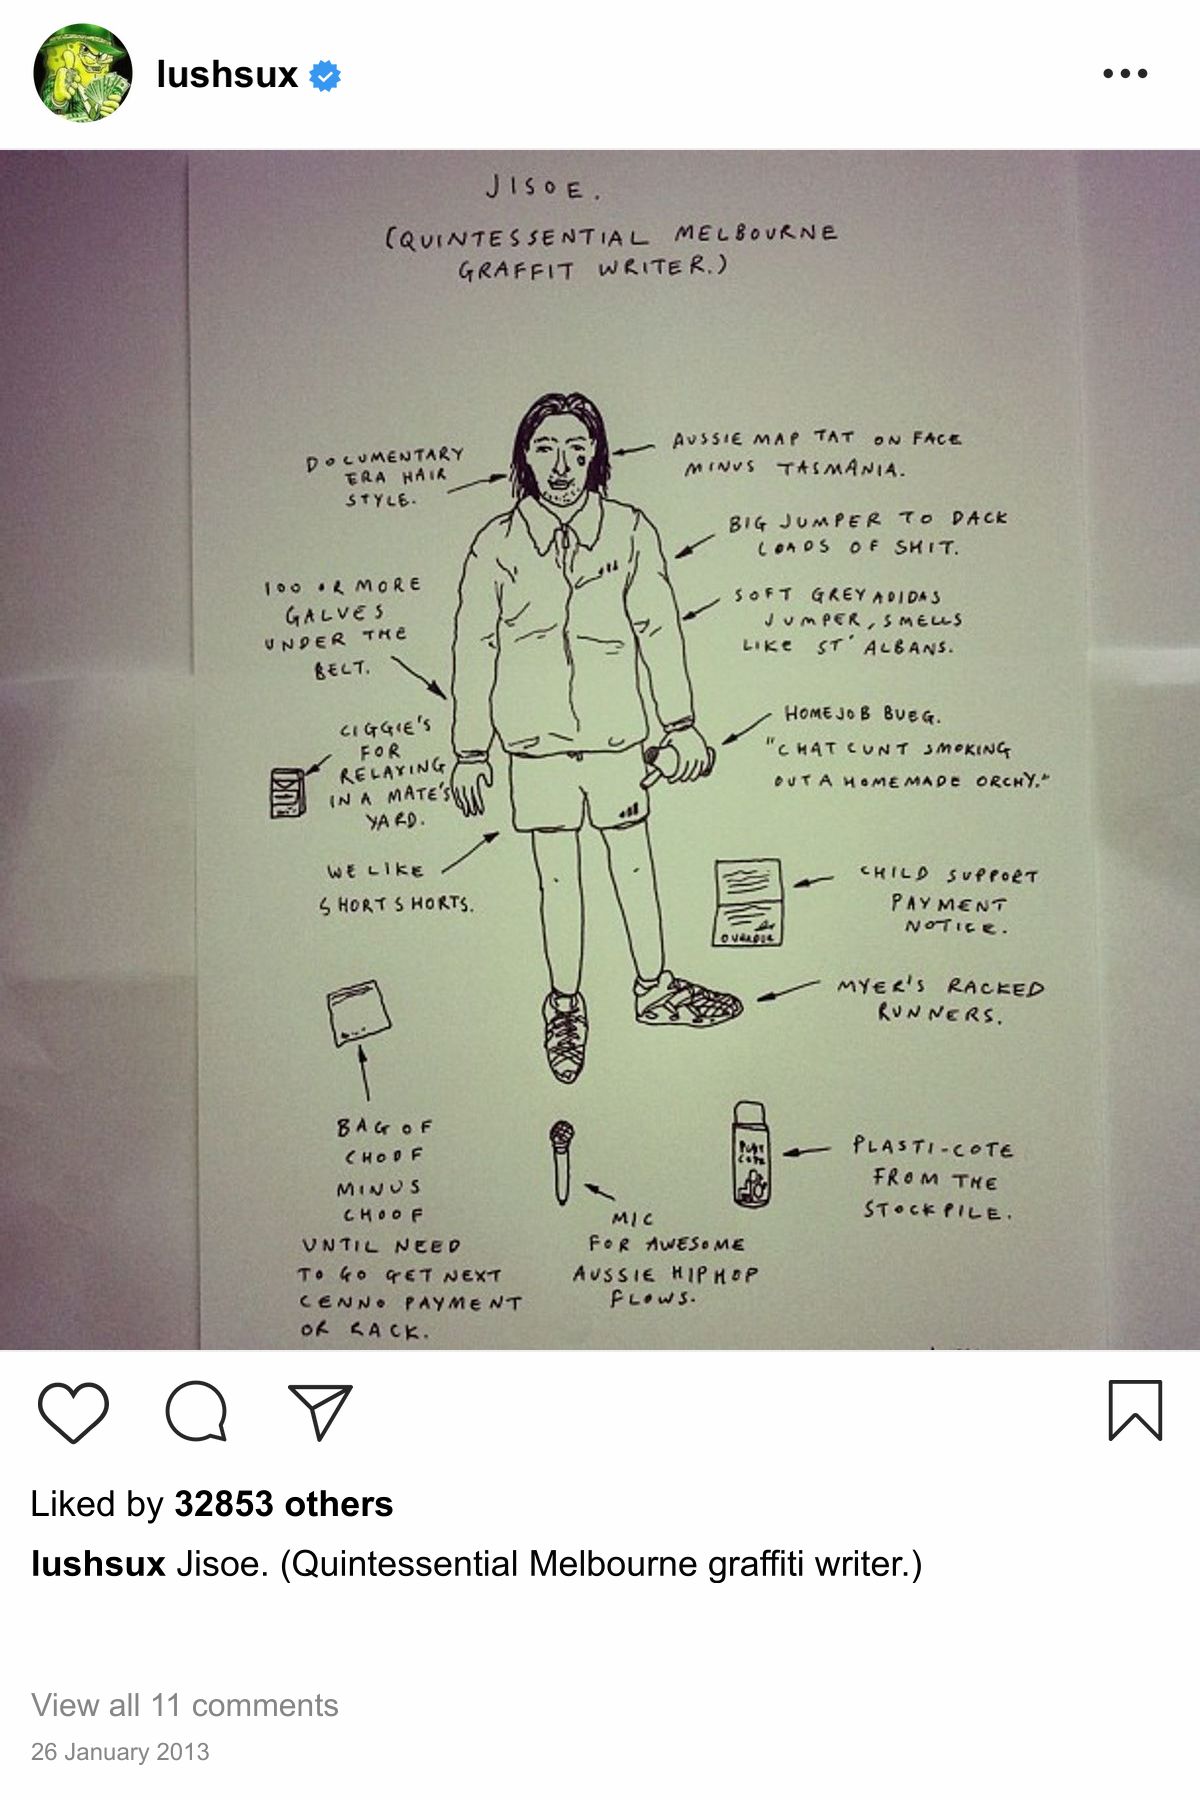 lushsux
JISOE.
(QUINTESSENTIAL MELBOURNE
GRAFFIT WRITER.)
DOCUMENTARY
ERA HAIR
STYLE.
AUSSIE MAP TAT ON FACE
MINUS TASMANIA.
BIG JUMPER TO DACK
LOADS OF SHIT.
100 OR MORE
GALVES
UNDER THE
BELT.
SOFT GREY ADIDAS
JUMPER, SMELLS
LIKE ST' ALBANS.
CIGGIE'S
FOR
RELAYING
IN A MATE'S
YARD.
HOMEJOB BUEG.
"CHAT CUNT SMOKING
OUT A HOMEMADE ORCHY."
WE LIKE
SHORT SHORTS.
CHILD SUPPORT
PAYMENT
NOTICE.
OVERDUE
MYER'S RACKED
RUNNERS.
BAG OF
CHOOF
MINUS
CHOOF
UNTIL NEED
TO GO GET NEXT
CENNO PAYMENT
OR RACK.
MIC
FOR AWESOME
AUSSIE HIPHOP
FLOWS.
PLASTI-COTE
FROM THE
STOCKPILE.
Liked by 32853 others
lushsux Jisoe. (Quintessential Melbourne graffiti writer.)
View all 11 comments
26 January 2013